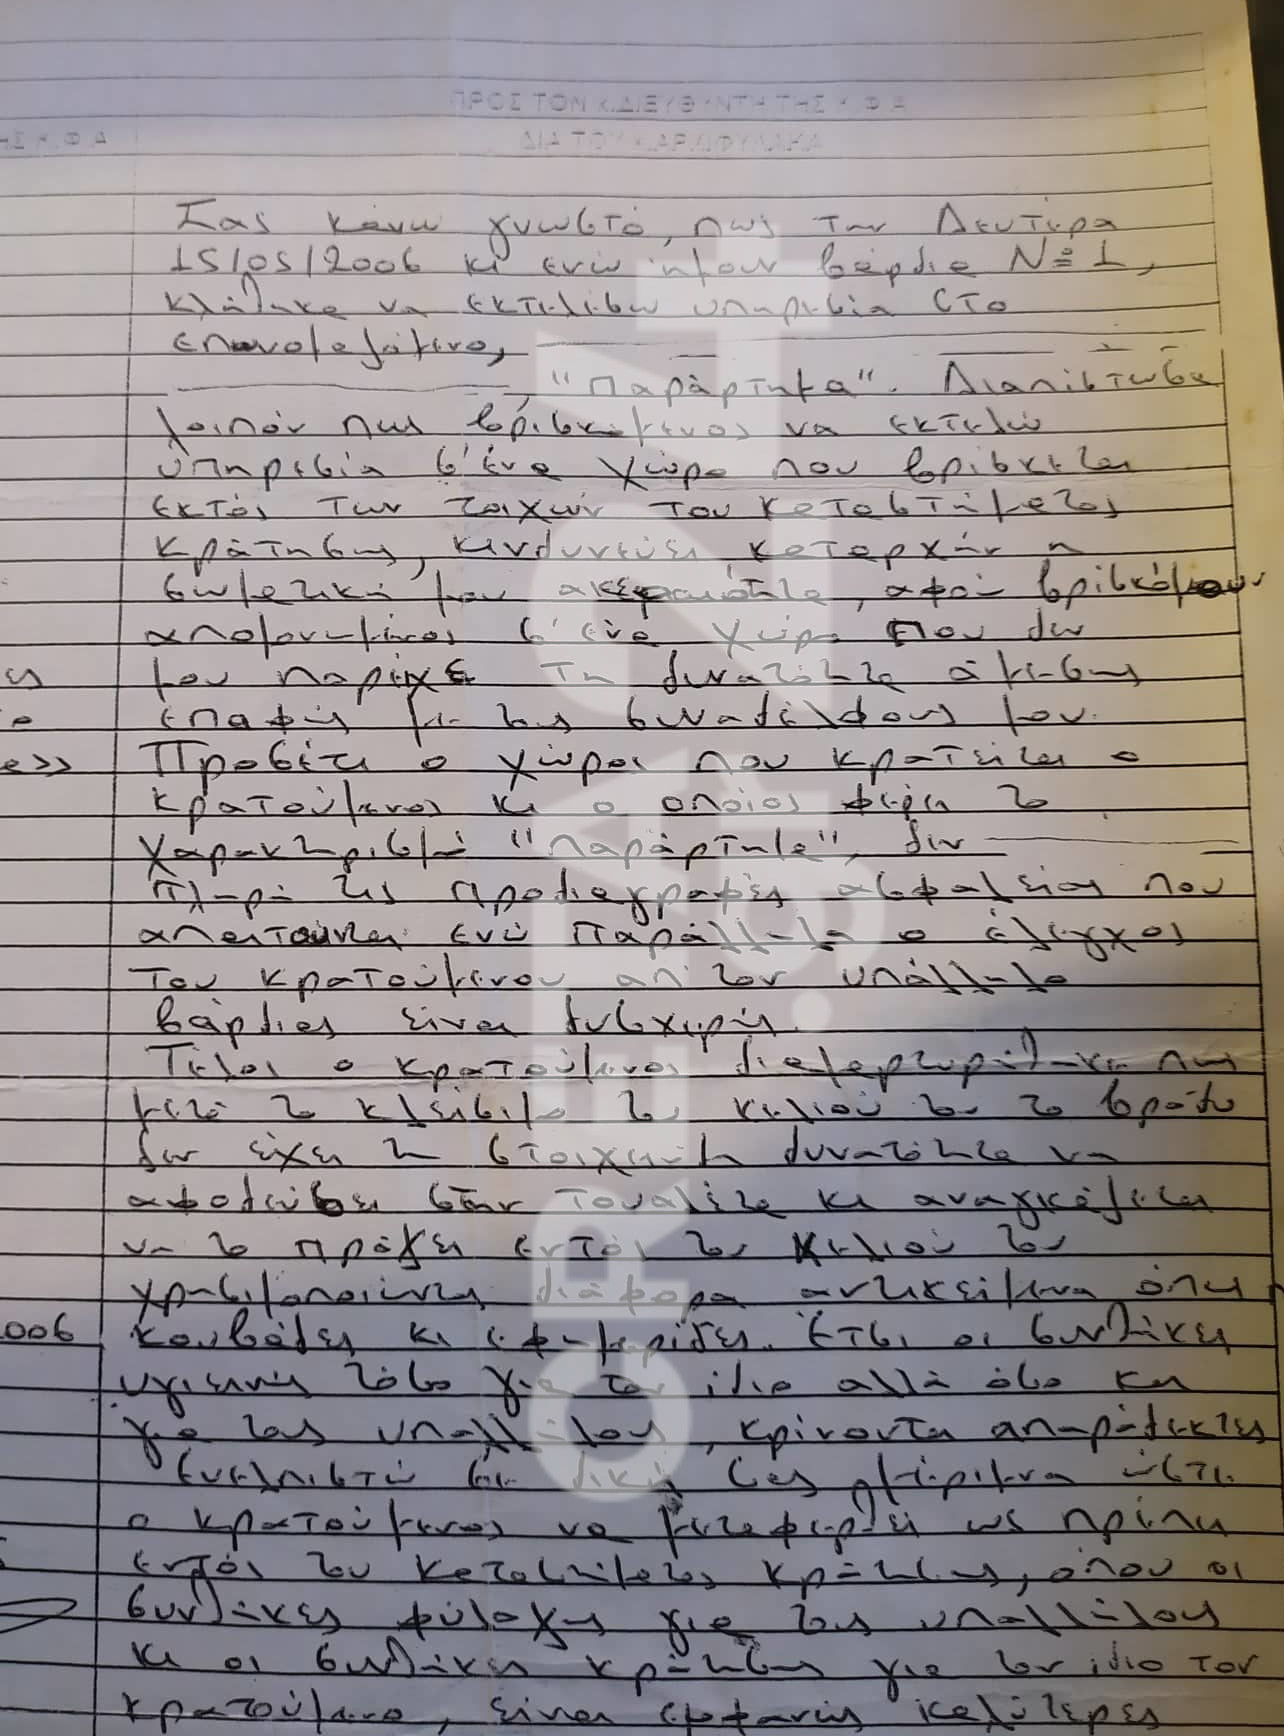 ΠΡΟΣ ΤΟΝ κ.ΔΙΕΥΘΥΝΤΗ ΤΗΣ Κ.Φ.Α
ΗΣ Κ.Φ.Α ΔΙΑ ΤΟΥ κ.ΑΡΧΙΦΥΛΑΚΑ
Σας κάνω γνωστό, πως την Δευτέρα
15/05/2006 κι ενώ ήμουν βάρδια Νο 1,
κλήθηκα να εκτελέσω υπηρεσία στο
επονομαζόμενο,
"Παράρτημα". Διαπίστωσα
λοιπόν πως βρισκόμενος να εκτελώ
υπηρεσία σ'ένα χώρο που βρίσκεται
εκτός των τοιχών του καταστήματος
κράτησης, κινδυνεύει καταρχήν η
σωματική μου ακεραιότητα, αφού βρισκόμουν
απομονωμένος σ'ένα χώρο που δεν
μου παρείχε τη δυνατότητα άμεσης
επαφής με τους συναδέλφους μου.
Προσέτι ο χώρος που κρατείται ο
κρατούμενος κι ο οποίος φέρει το
χαρακτηρισμό "παράρτημα", δεν
πληρά τις προδιαγραφές ασφαλείας που
απαιτούνται ενώ παράλληλα ο έλεγχος
του κρατούμενου απ' τον υπάλληλο
βάρδιας είναι δυσχερής.
Τέλος ο κρατούμενος διαμαρτυρήθηκε πως
μετά το κλείσιμο του κελιού του το βράδυ
δεν έχει τη στοιχειώδη δυνατότητα να
αφοδεύσει στην τουαλέτα κι αναγκάζεται
να το πράξει εντός του κελιού του
χρησιμοποιώντας διάφορα αντικείμενα όπως
006 κουβάδες κι εφημερίδες. Έτσι οι συνθήκες
υγιεινής τόσο για τον ίδιο αλλά όσο και
για τους υπαλλήλους, κρίνονται απαράδεκτες
Ευελπιστώ σε δική σας μέριμνα ώστε
ο κρατούμενος να μεταφερθεί ως πρέπει
εντός του καταστήματος κράτησης, όπου οι
συνθήκες φύλαξης για τους υπαλλήλους
κι οι συνθήκες κράτησης για τον ίδιο τον
κρατούμενο, είναι εμφανώς καλύτερες
CRETAONE.gr